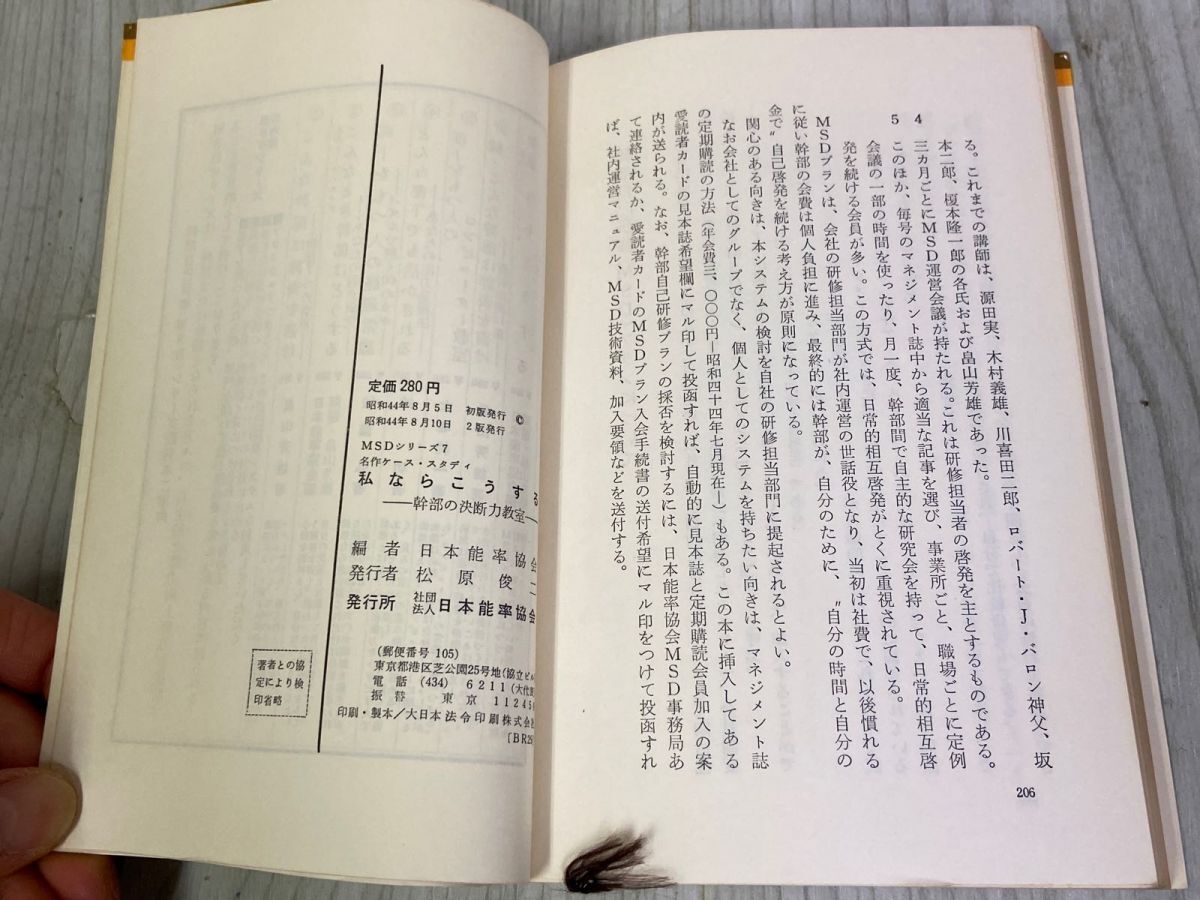 る。これまでの講師は、源田実、木村義雄、川喜田二郎、ロバート・J・バロン神父、坂
本二郎、榎本隆一郎の各氏および畠山芳雄であった。
4 三カ月ごとにMSD運営会議が持たれる。これは研修担当者の啓発を主とするものである。
5 このほか、毎号のマネジメント誌中から適当な記事を選び、事業所ごと、職場ごとに定例
会議の一部の時間を使ったり、月一度、幹部間で自主的な研究会を持って、日常的相互啓
発を続ける会員が多い。この方式では、日常的相互啓発がとくに重視されている。
MSDプランは、会社の研修担当部門が社内運営の世話役となり、当初は社費で、以後慣れる
に従い幹部の会費は個人負担に進み、最終的には幹部が、自分のために、〝自分の時間と自分の
金で〟自己啓発を続ける考え方が原則になっている。
関心のある向きは、本システムの検討を自社の研修担当部門に提起されるとよい。
なお会社としてのグループでなく、個人としてのシステムを持ちたい向きは、マネジメント誌
の定期購読の方法（年会費三、〇〇〇円―昭和四十四年七月現在―）もある。この本に挿入してある
愛読者カードの見本誌希望欄にマル印して投函すれば、自動的に見本誌と定期購読会員加入の案
内が送られる。なお、幹部自己研修プランの採否を検討するには、日本能率協会MSD事務局あ
て連絡されるか、愛読者カードのMSDプラン入会手続書の送付希望にマル印をつけて投函すれ
ば、社内運営マニュアル、MSD技術資料、加入要領などを送付する。
206
定価280円
昭和44年8月5日 初版発行 ©
昭和44年8月10日 2版発行
MSDシリーズ7
名作ケース・スタディ
私ならこうする
―幹部の決断力教室―
編者 日本能率協会
発行者 松原俊二
発行所 社団法人 日本能率協会
(郵便番号 105)
東京都港区芝公園25号地(協立ビル
電話 (434) 6211 (大代表
振替 東京 11245
印刷・製本/大日本法令印刷株式会社
〔BR29
著者との協
定により検
印省略